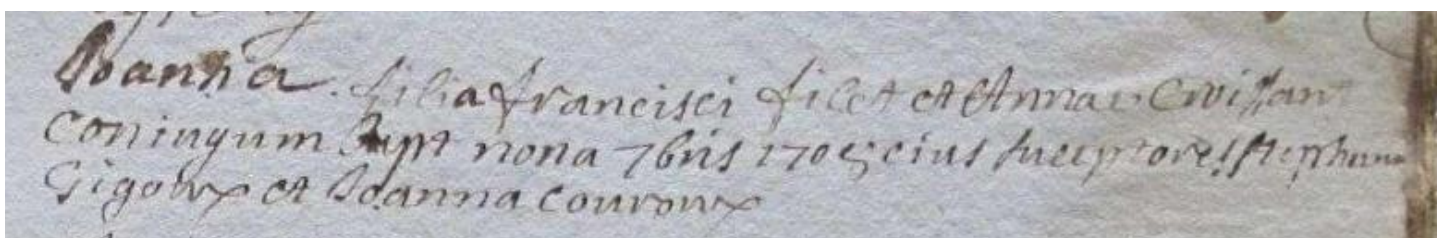 Joanna filia francisci filet et Annae Croissant
Coniugum bapt nona 7bris 1705 eius susceptores stephanus
Gigoux et Joanna Couroux